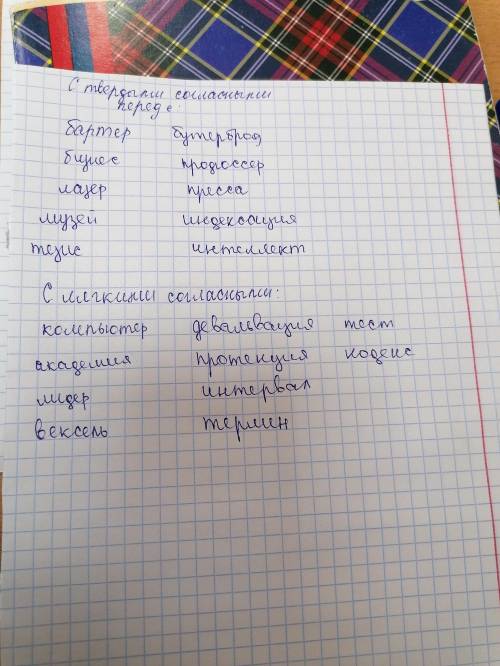 С твердыми согласными
перед е:
бартер бутерброд
бизнес продюссер
лазер пресса
музей индексация
тезис интеллект
С мягкими согласными:
компьютер девальвация тест
академия протекция кодекс
лидер интервал
вексель термин